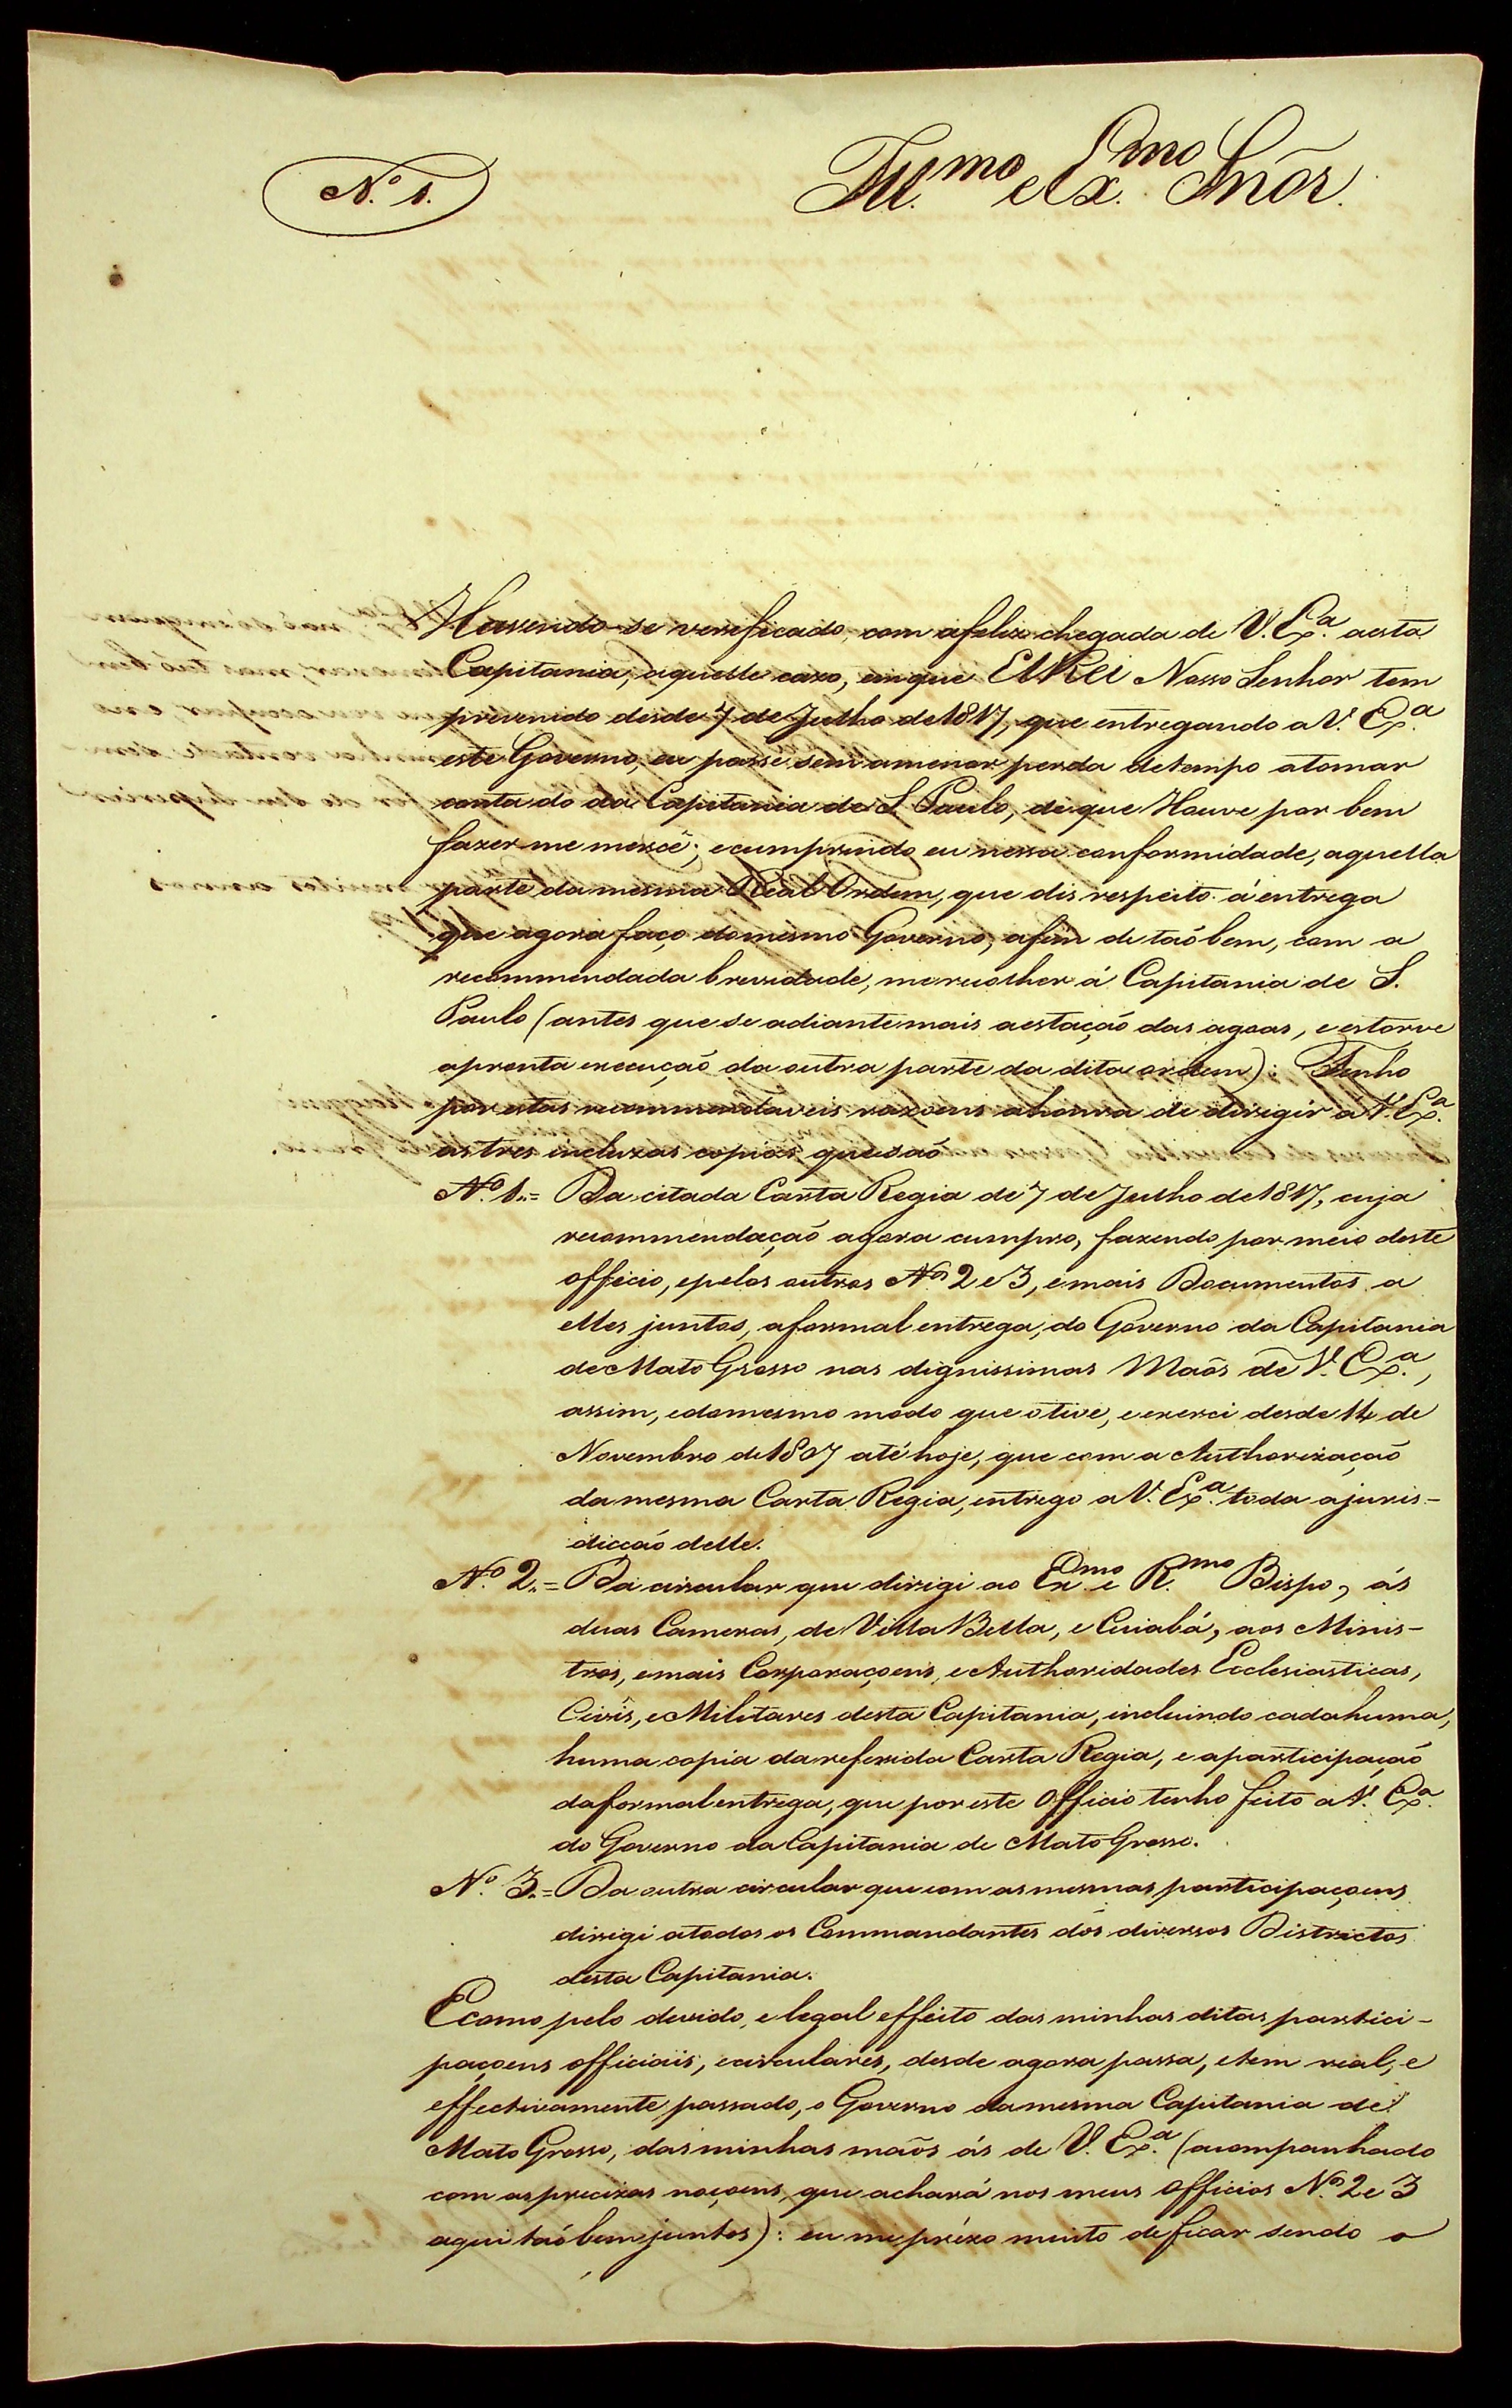 N.º 1.
Ill.mo e Ex.mo Snõr.
Havendo-se verificado, com afeliz chegada de V. Ex.ª aesta
Capitania, aquelle cazo, emque ElRei Nosso Senhor tem
prevenido desde 7 de Julho de 1817, que entregando a V. Ex.ª
este Governo, eu passe sem amenor perda detempo atomar
conta do da Capitania de S. Paulo, deque Houve por bem
fazer-me mercê; ecumprindo eu nessa conformidade, aquella
parte da mesma Real Ordem, que dis respeito á entrega
que agora faço domesmo Governo, afim de taõbem, com a
recommendada brevidade, merecolher á Capitania de S.
Paulo (antes que se adiantemais aestaçaõ das agoas, e estorve
apronta execuçaõ da outra parte da dita ordem): Tenho
por estas recommendaveis razoens ahonra de dirigir á V. Ex.ª
as tres incluzas copias quesaõ
N.º 1.= Da citada Carta Regia de 7 de Julho de 1817, cuja
recommendaçaõ agora cumpro, fazendo por meio deste
officio, epelos outros N.os 2 e 3, emais Documentos a
elles juntos, aformal entrega, do Governo da Capitania
de Mato Grosso nas dignissimas Maõs de V. Ex.ª,
assim, edomesmo modo que otive, e exerci desde 14 de
Novembro de 1807 até hoje, que com a Authorizaçaõ
da mesma Carta Regia, entrego a V. Ex.ª toda ajuris-
dicçaõ delle.
N.º 2.= Da circular que dirigi ao Ex.mo e R.mo Bispo, ás
duas Cameras, de Villa Bella, e Cuiabá, aos Minis-
tros, emais Corporaçoens, e Authoridades Ecclesiasticas,
Civîs, e Militares desta Capitania, incluindo cadahuma,
huma copia da referida Carta Regia, e aparticipaçaõ
daformal entrega, que por este Officio tenho feito a V. Ex.ª
do Governo da Capitania de Mato Grosso.
N.º 3.= Da outra circular quecom asmesmas participaçoens
dirigi atodos os Commandantes dos diversos Districtos
desta Capitania.
Ecomo pelo devido, e legal effeito das minhas ditas partici-
paçoens officiais, ecirculares, desde agora passa, etem real, e
effectivamente passado, o Governo damesma Capitania de
Mato Grosso, das minhas maõs ás de V. Ex.ª (acompanhado
com asprecizas noçoens, que achará nos meus Officios N.os 2 e 3
aqui taõbem juntos): eu me prézo muito deficar sendo o